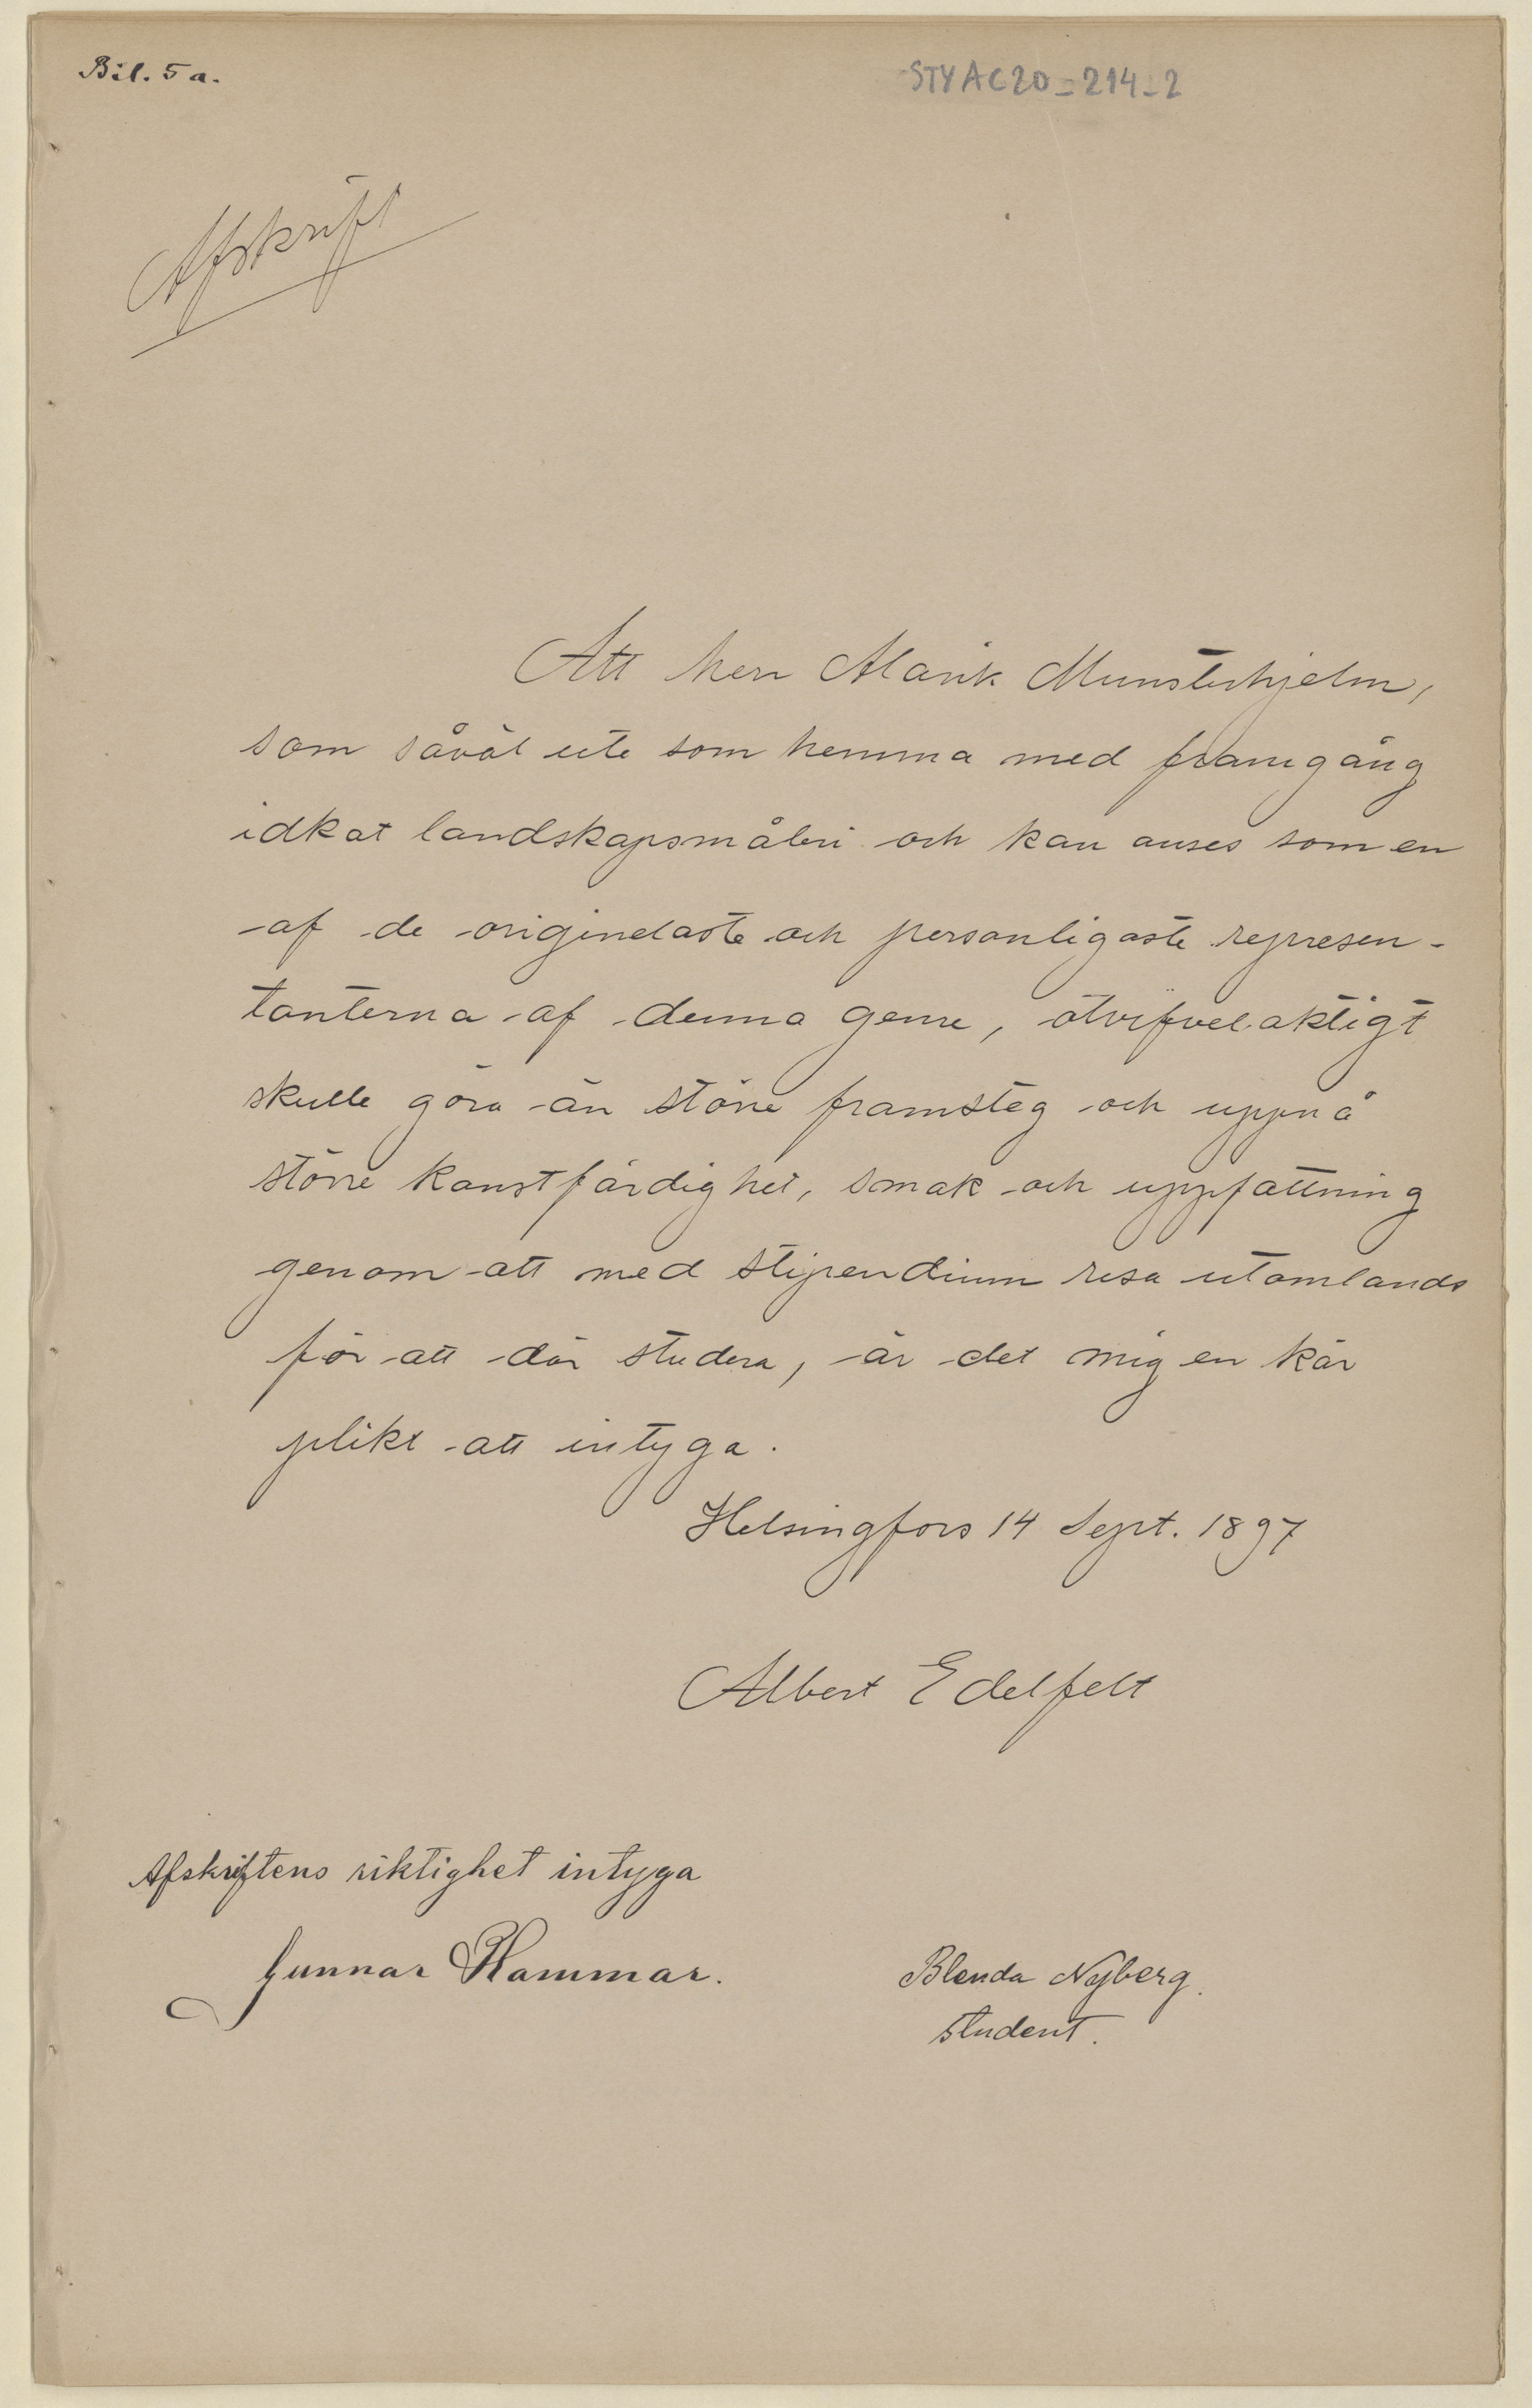 Bil. 5 a.
STYAC20_214_2
Afskrift
Att herr Alarik Munsterhjelm,
som såväl ute som hemma med framgång
idkat landskapsmåleri och kan anses som en
af de originelaste och personligaste represen-
tanterna af denna genre, otvifvelaktigt
skulle göra än större framsteg och uppnå
större konstfärdighet, smak och uppfattning
genom att med stipendium resa utomlands
för att där studera, är det mig en kär
plikt att intyga.
Helsingfors 14 Sept. 1897
Albert Edelfelt
Afskriftens riktighet intyga
Gunnar Hammar.
Blenda Nyberg.
student.